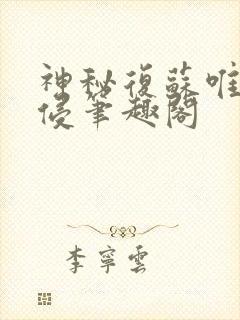 神秘復蘇唯
侵筆趣閣
李寧雲